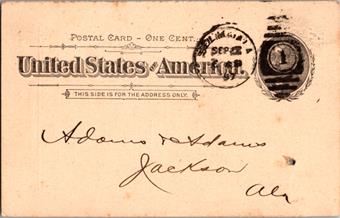 POSTAL CARD - ONE CENT.
United States of America.
THIS SIDE IS FOR THE ADDRESS ONLY.
SEP
1
Adams & Adams
Jackson
Ala